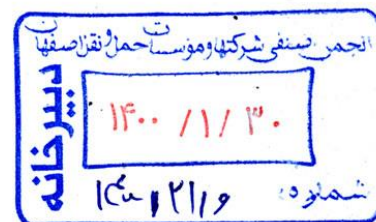 انجمن صنفی شرکتها و مؤسسات حمل و نقل اصفهان
دبیرخانه
۱۴۰۰ /۱/ ۳۰
شماره: